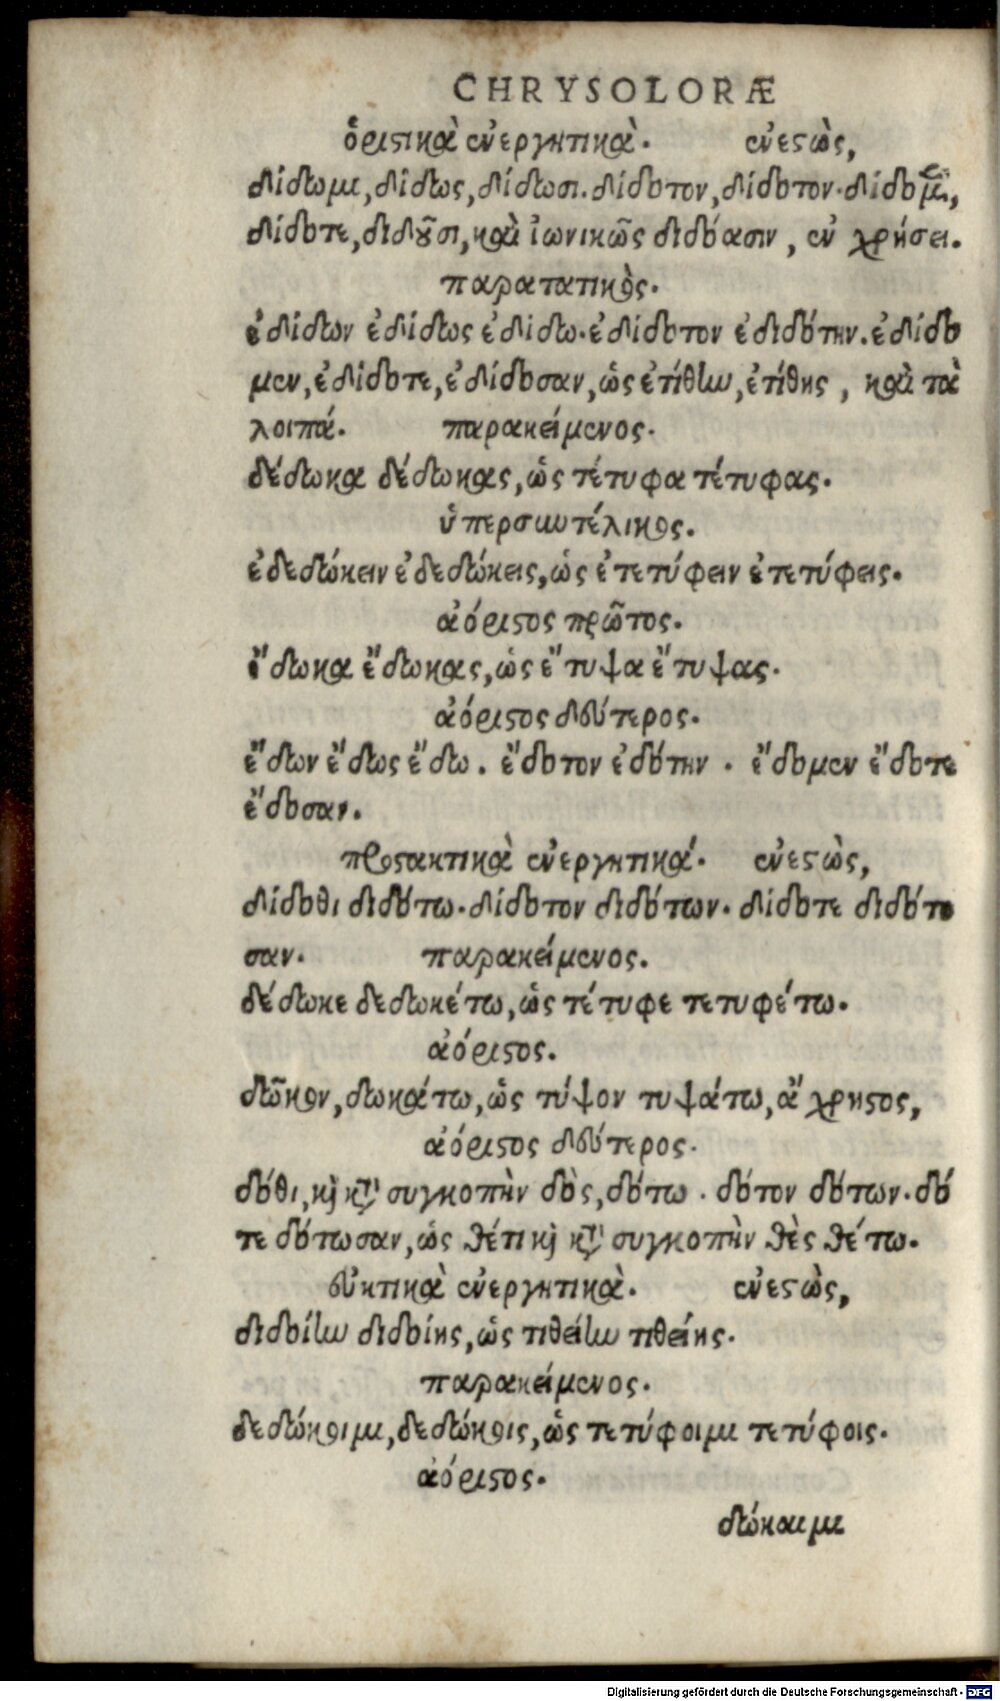 CHRYSOLORÆ
ὁριστικὰ ἐνεργητικὰ. ἐνεστὼς,
δίδωμι, δίδως, δίδωσι. δίδοτον, δίδοτον. δίδομεν,
δίδοτε, διδοῦσι, καὶ ἰωνικῶς διδόασιν, ἐν χρήσει.
παρατατικὸς.
ἐδίδων ἐδίδως ἐδίδω. ἐδίδοτον ἐδιδότην. ἐδίδο
μεν, ἐδίδοτε, ἐδίδοσαν, ὡς ἐτίθην, ἐτίθης, καὶ τὰ
λοιπά. παρακείμενος.
δέδωκα δέδωκας, ὡς τέτυφα τέτυφας.
ὑπερσυντέλικος.
ἐδεδώκειν ἐδεδώκεις, ὡς ἐτετύφειν ἐτετύφεις.
ἀόριστος πρῶτος.
ἔδωκα ἔδωκας, ὡς ἔτυψα ἔτυψας.
ἀόριστος δεύτερος.
ἔδων ἔδως ἔδω. ἔδοτον ἐδότην. ἔδομεν ἔδοτε
ἔδοσαν.
προστακτικὰ ἐνεργητικά. ἐνεστὼς,
δίδοθι διδότω. δίδοτον διδότων. δίδοτε διδότω
σαν. παρακείμενος.
δέδωκε δεδωκέτω, ὡς τέτυφε τετυφέτω.
ἀόριστος.
δῶκον, δωκάτω, ὡς τύψον τυψάτω, ἄχρηστος,
ἀόριστος δεύτερος.
δόθι, καὶ κατὰ συγκοπὴν δὸς, δότω. δότον δότων. δό
τε δότωσαν, ὡς θέτι καὶ κατὰ συγκοπὴν θὲς θέτω.
εὐκτικὰ ἐνεργητικὰ. ἐνεστὼς,
διδοίην διδοίης, ὡς τιθείην τιθείης.
παρακείμενος.
δεδώκοιμι, δεδώκοις, ὡς τετύφοιμι τετύφοις.
ἀόριστος.
δώκαιμι
Digitalisierung gefördert durch die Deutsche Forschungsgemeinschaft - DFG